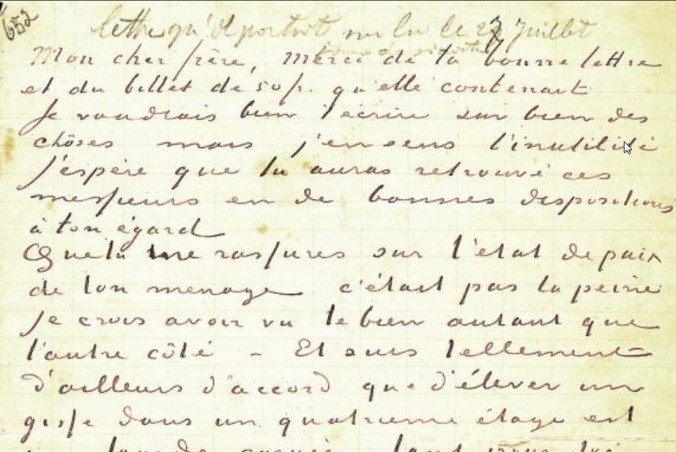 652
lettre qu'il portait sur lui le 27 Juillet
Mon cher frère, merci de ta bonne lettre
et du billet de 50 fr. qu'elle contenait
Je voudrais bien t'écrire sur bien des
chôses mais j'en sens l'inutilité
J'espère que tu auras retrouvé ces
messieurs en de bonnes dispositions
à ton égard
Que tu me rassures sur l'état de paix
de ton menage c'était pas la peine
Je crois avoir vu le bien autant que
l'autre côté – Et suis tellement
d'ailleurs d'accord que d'élever un
gosse dans un quatrieme étage est